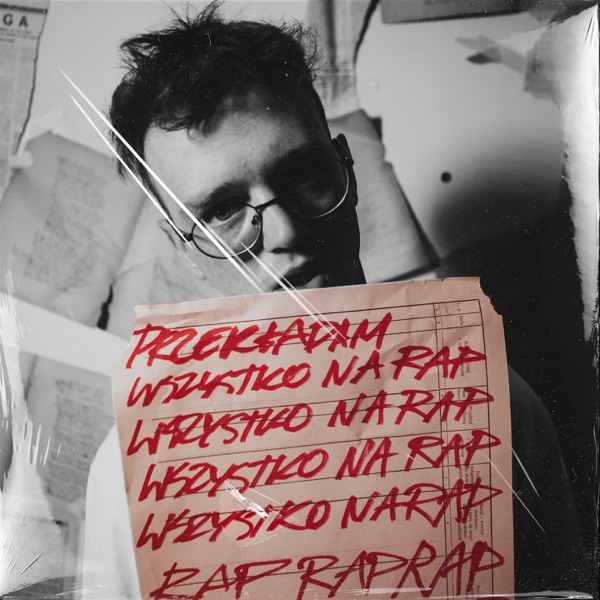 GA
PRZEKŁADAM
WSZYSTKO NA RAP
WSZYSTKO NA RAP
WSZYSTKO NA RAP
WSZYSTKO NA RAP
RAP RAP RAP